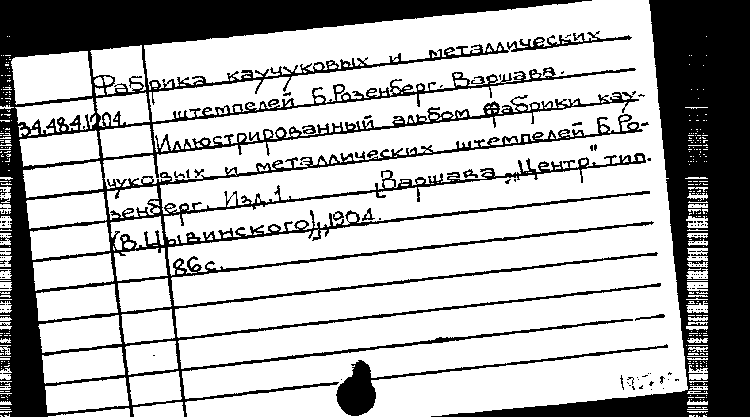 Фабрика каучуковых и металлических
34.48.4.1204. штемпелей Б.Розенберг. Варшава.
Иллюстрированный альбом фабрики кау-
чуковых и металлических штемпелей Б.Ро-
зенберг. Изд.1. [Варшава, „Центр." тип.
(В.Цывинского)], 1904.
86с.